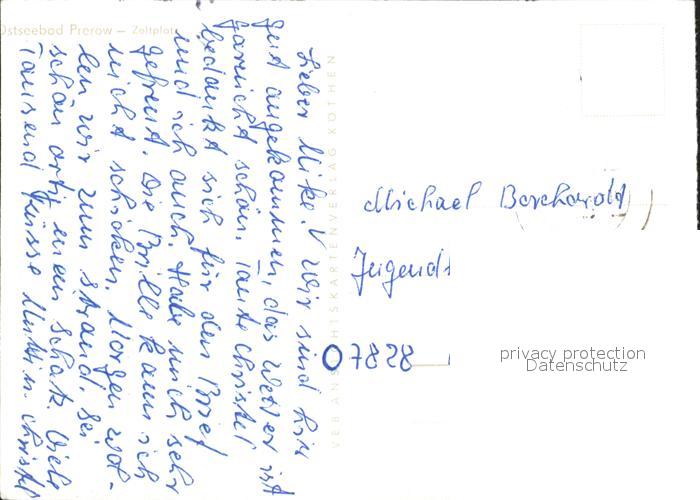 Ostseebad Prerow — Zeltplatz
Lieber Mike! Wir sind hier
gut angekommen, das Wetter ist
garnicht schön. Tante Christel
bedankt sich für den Brief
und ich auch. Habe mich sehr
gefreut. Die Brille kann ich
nicht schicken. Morgen wol-
len wir zum Strand. Sei
schön artig mein Schatz. Viele
Tausend Küsse Mutti u. Christel
VEB ANSICHTSKARTENVERLAG KÖTHEN
Michael Borchardt
Jugend
07828
privacy protection
Datenschutz